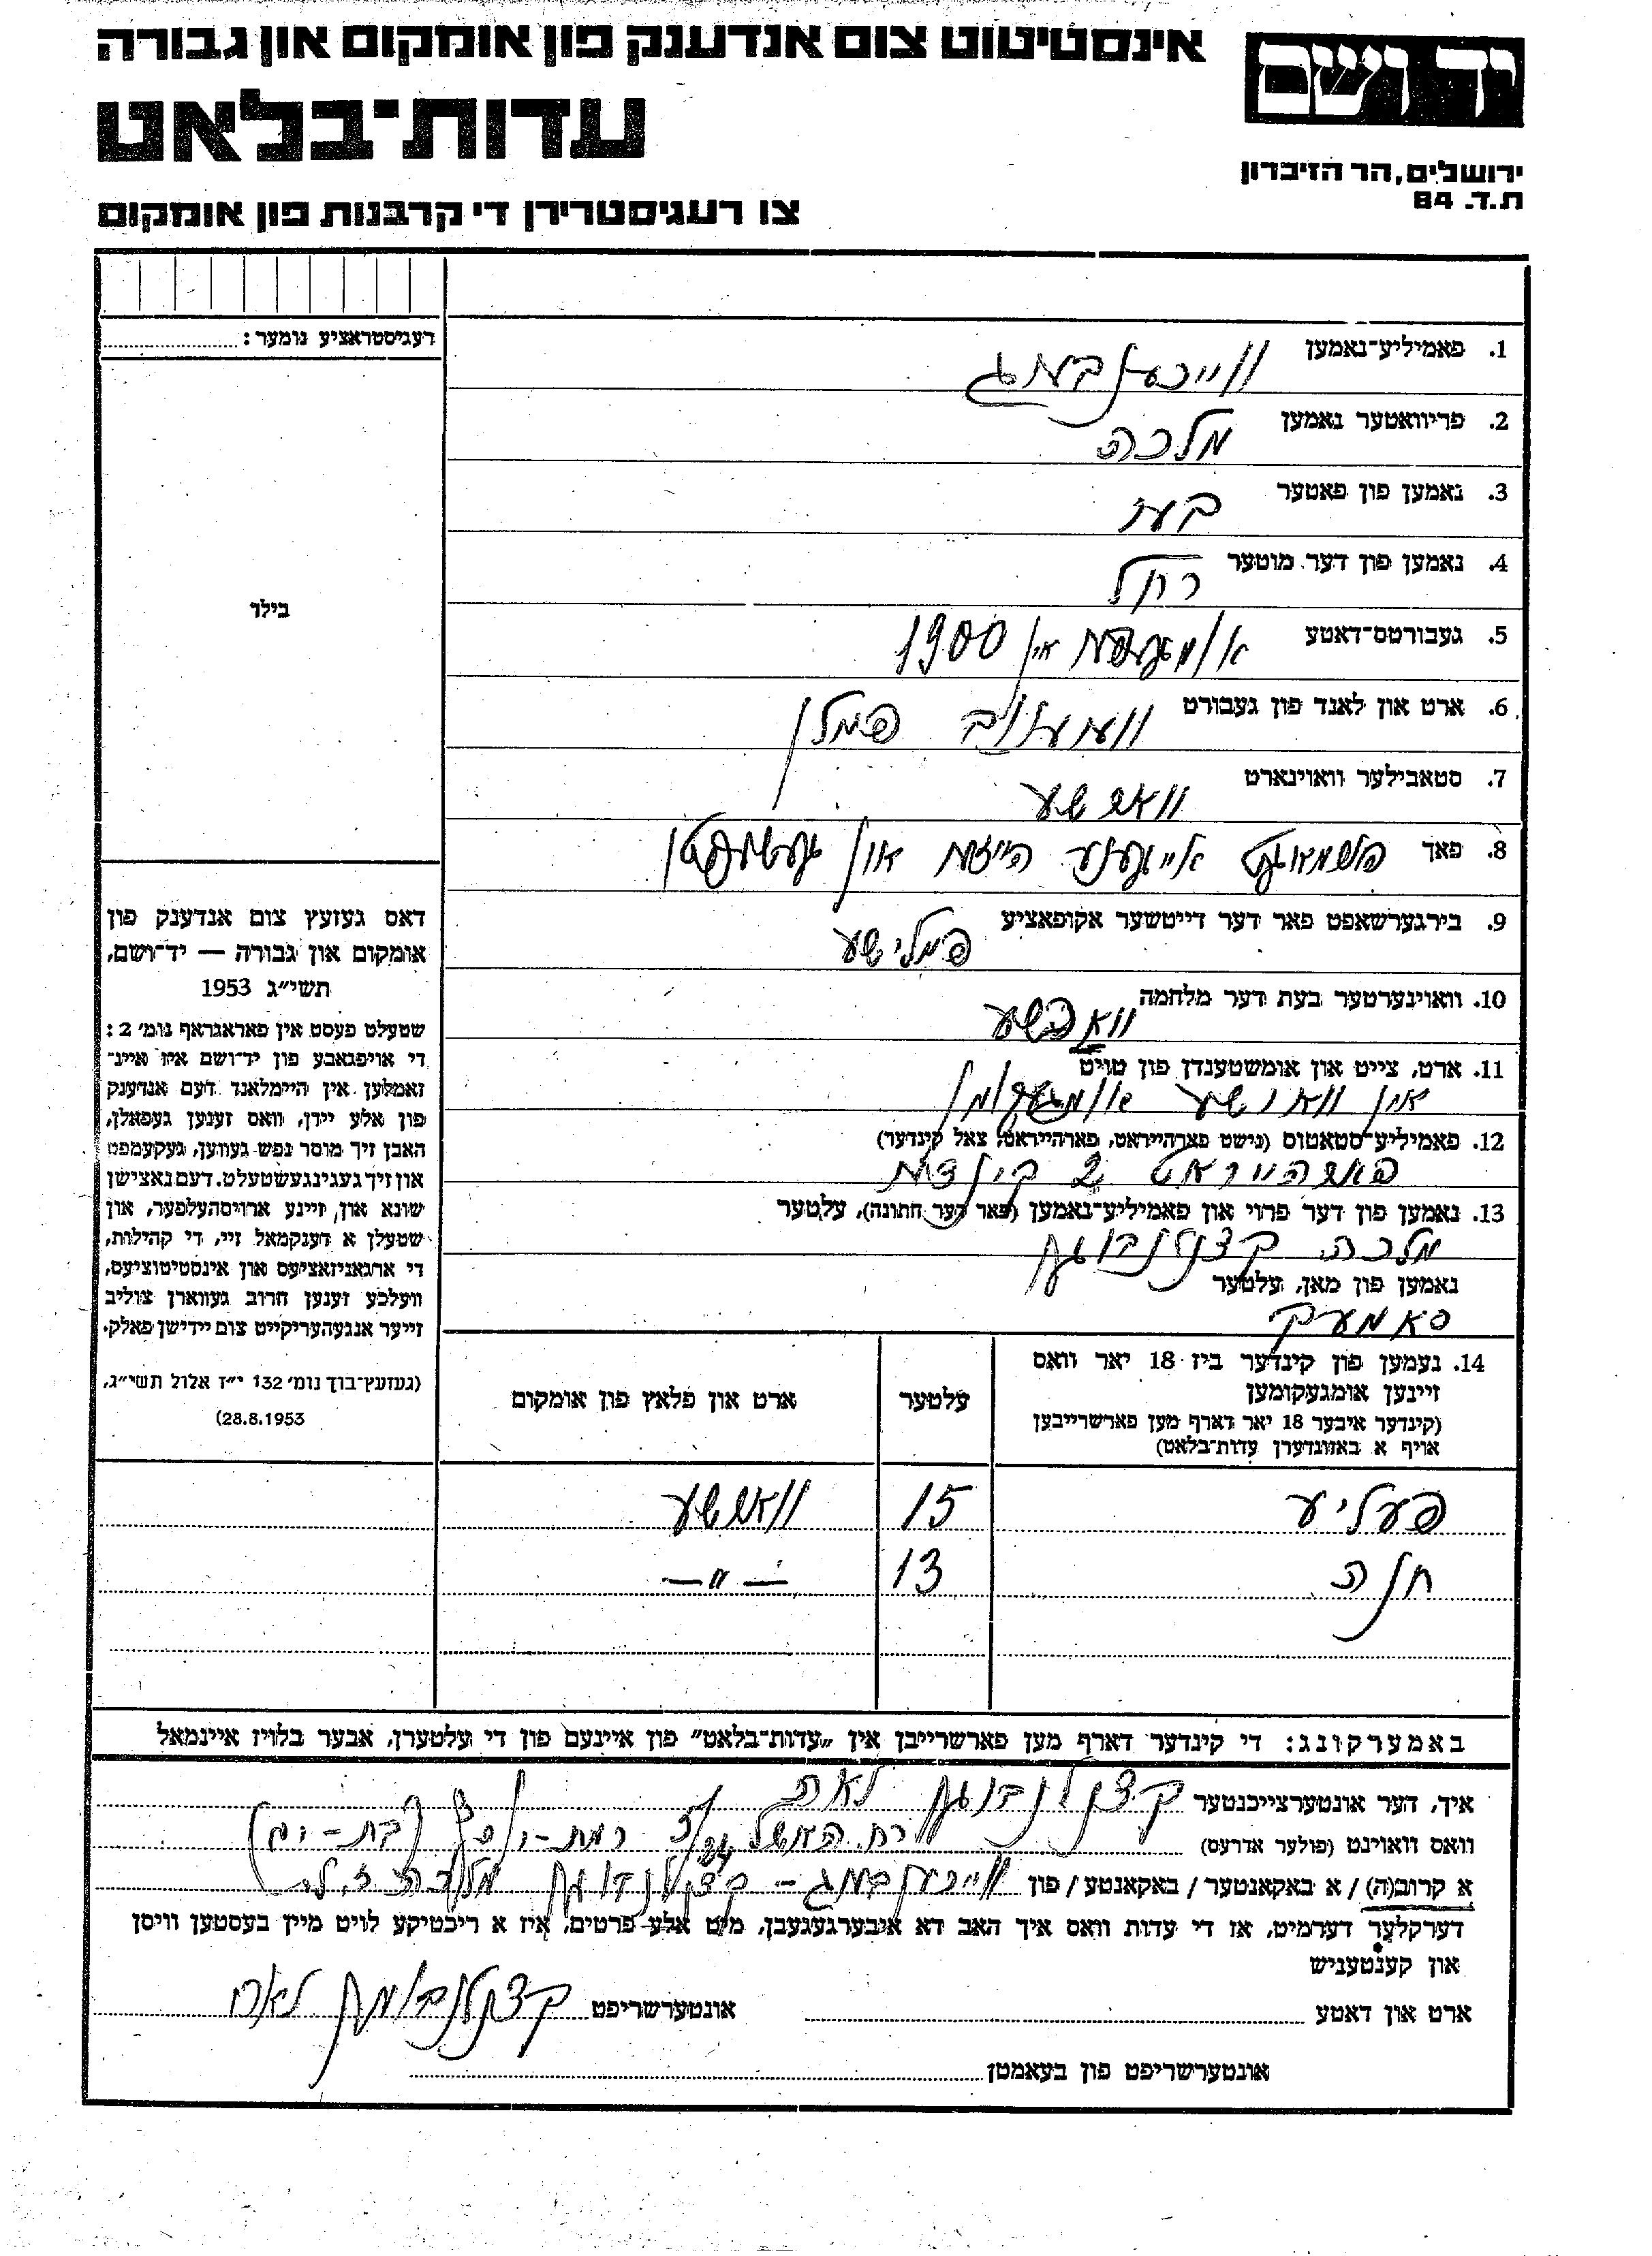 יד ושם
אינסטיטוט צום אנדענק פון אומקום און גבורה
עדות-בלאט
ירושלים, הר הזיכרון
ת.ד. 84
צו רעגיסטרירן די קרבנות פון אומקום
רעגיסטראציע נומער:
בילד
דאס געזעץ צום אנדענק פון
אומקום און גבורה — יד-ושם,
תשי״ג 1953
שטעלט פעסט אין פאראגראף נומ׳ 2:
די אויפגאבע פון יד-ושם איז איינ-
זאמלען אין היימלאנד דעם אנדענק
פון אלע יידן, וואס זענען געפאלן,
האבן זיך מוסר נפש געווען, געקעמפט
און זיך געגינגעשטעלט. דעם נאצישן
שונא און זיינע ארויסהעלפער, און
שטעלן א דענקמאל זיי, די קהילות,
די ארגאניזאציעס און אינסטיטוציעס,
וועלכע זענען חרוב געווארן צוליב
זייער אנגעהעריקייט צום יידישן פאלק.
(געזעץ-בוך נומ׳ 132 י״ז אלול תשי״ג,
28.8.1953)
1. פאמיליע-נאמען
2. פריוואטער נאמען מלכה
3. נאמען פון פאטער
4. נאמען פון דער מוטער רחל
5. געבורטס-דאטע אומגעפער אין 1900
6. ארט און לאנד פון געבורט פוילן
7. סטאבילער וואוינארט ווארשע
8. פאך אייגענע הייזער און געשעפטן
9. בירגערשאפט פאר דער דייטשער אקופאציע פוילישע
10. וואוינערטער בעת דער מלחמה ווארשע
11. ארט, צייט און אומשטענדן פון טויט
אין ווארשע אומגעקומן
12. פאמיליע-סטאטוס (נישט פארהייראט, פארהייראט, צאל קינדער)
פארהייראט 2 קינדער
13. נאמען פון דער פרוי און פאמיליע-נאמען (פאר דער חתונה), עלטער
מלכה קצנלנבוגן
נאמען פון מאן, עלטער
14. נעמען פון קינדער ביז 18 יאר וואס
זיינען אומגעקומען
(קינדער איבער 18 יאר דארף מען פארשרייבן
אויף א באזונדערן עדות-בלאט)
עלטער
ארט און פלאץ פון אומקום
פעליע 15 ווארשע
חנה 13 — " —
באמערקונג: די קינדער דארף מען פארשרייבן אין „עדות-בלאט" פון איינעם פון די עלטערן, אבער בלויז איינמאל
איך, דער אונטערצייכנטער קצנלנבוגן לאה
וואס וואוינט (פולער אדרעס) רח האשל רמת-יוסף (בת-ים)
א קרוב(ה) / א באקאנטער / באקאנטע / פון קצנלנבוגן מלכה ז.ל.
דערקלער דערמיט, אז די עדות וואס איך האב דא איבערגעגעבן, מיט אלע פרטים, איז א ריכטיקע לויט מיין בעסטען וויסן
און קענטעניש
ארט און דאטע אונטערשריפט קצנלנבוגן לאה
אונטערשריפט פון בעאמטן